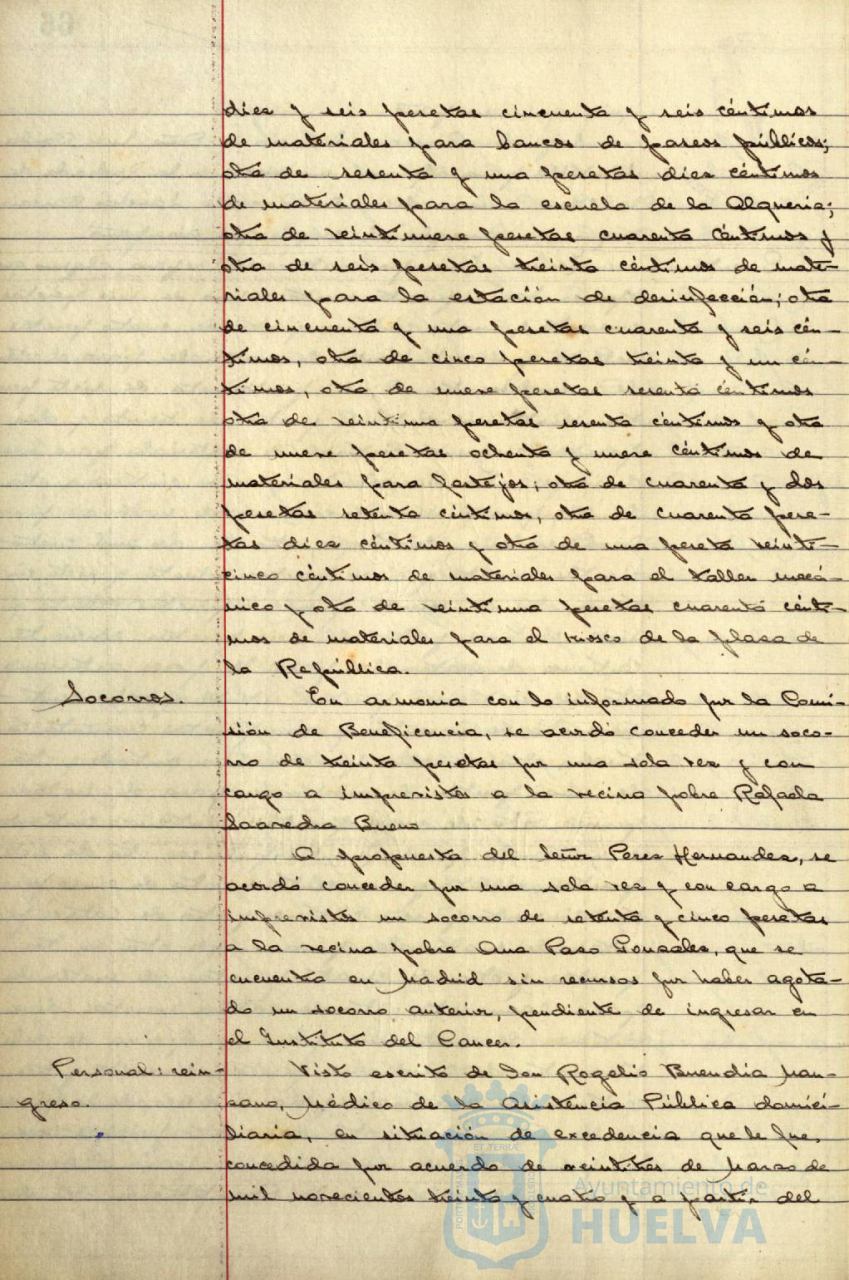 diez y seis pesetas cincuenta y seis céntimos
de materiales para bancos de paseos públicos;
otra de sesenta y una pesetas diez céntimos
de materiales para la escuela de la Alqueria;
otra de veintinueve pesetas cuarenta céntimos y
otra de seis pesetas treinta céntimos de mate-
riales para la estación de desinfección; otra
de cincuenta y una pesetas cuarenta y seis cén-
timos, otra de cinco pesetas treinta y un cén-
timos, otra de nueve pesetas sesenta céntimos
otra de veintiuna pesetas sesenta céntimos y otra
de nueve pesetas ochenta y nueve céntimos de
materiales para festejos; otra de cuarenta y dos
pesetas setenta céntimos, otra de cuarenta pese-
tas diez céntimos y otra de una peseta veinti-
cinco céntimos de materiales para el taller mecá-
nico y otra de veintiuna pesetas cuarenta cénti-
mos de materiales para el kiosco de la plaza de
la República.
Socorros.
En armonia con lo informado por la Comi-
sión de Beneficencia, se acordó conceder un soco-
rro de treinta pesetas por una sola vez y con
cargo a imprevistos a la vecina pobre Rafaela
Saavedra Bueno
A propuesta del Señor Perez Hernandez, se
acordó conceder por una sola vez y con cargo a
imprevistos un socorro de setenta y cinco pesetas
a la vecina pobre Ana Pazo Gonzalez, que se
encuentra en Madrid sin recursos por haber agota-
do un socorro anterior, pendiente de ingresar en
el Instituto del Cancer.
Personal: rein-
greso.
Visto escrito de Don Rogelio Buendia Man-
zano, Médico de la Asistencia Pública domici-
liaria, en situación de excedencia que le fue
concedida por acuerdo de veintitres de Marzo de
mil novecientos treinta y cuatro y a partir del
Ayuntamiento de
HUELVA